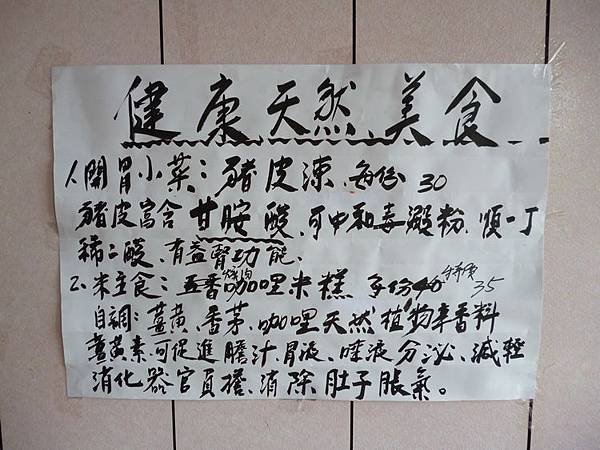 健康天然美食
1.開胃小菜:豬皮凍、每份 30
豬皮富含甘胺酸、可中和毒澱粉、順一丁
稀二酸、有益腎功能、
2.米主食:五香燒肉咖哩米糕、每份40 特價35
自調:薑黃、香茅、咖哩天然植物辛香料
薑黃素、可促進膽汁、胃液、唾液分泌、減輕
消化器官負擔、消除肚子脹氣。